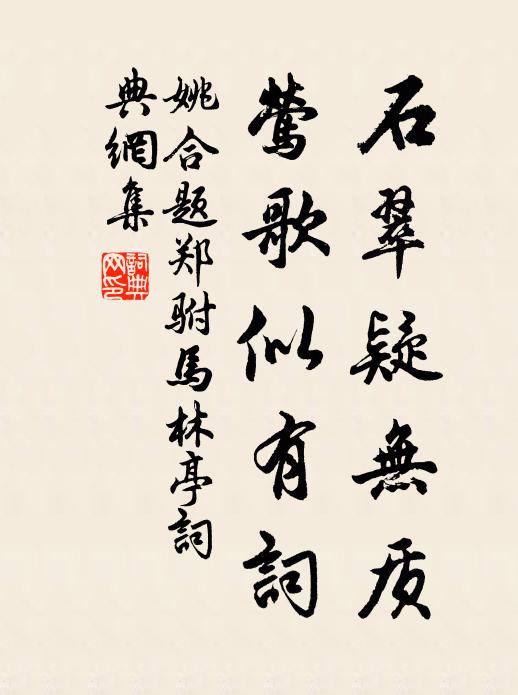 石翠疑無质
莺歌似有詞
姚合题郑驸馬林亭詞
典網集
詞典网印